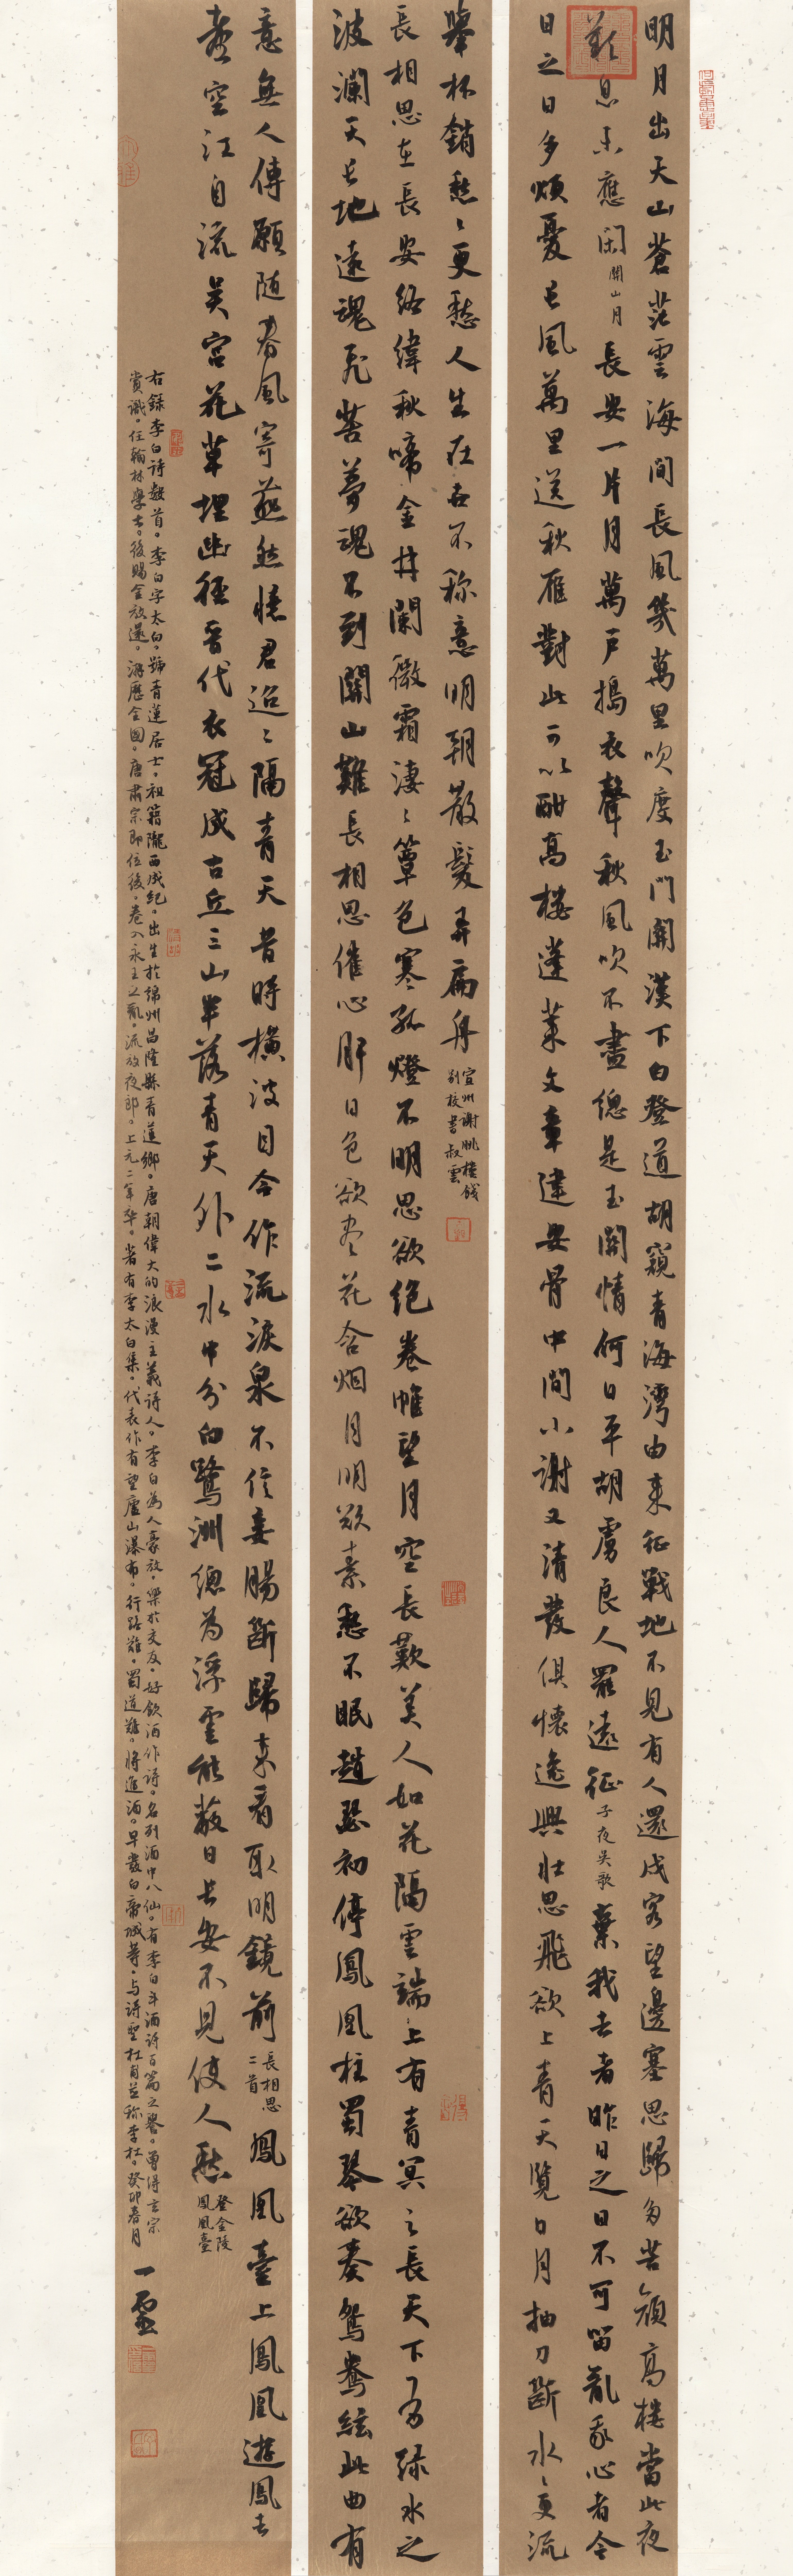 明月出天山蒼茫雲海間長風幾萬里吹度玉門關漢下白登道胡窺青海灣由来征戰地不見有人還戍客望邊塞思歸多苦顔高樓當此夜
歎息未應閑 關山月 長安一片月萬戸搗衣聲秋風吹不盡總是玉關情何日平胡虜良人罷遠征 子夜吴歌 棄我去者昨日之日不可留亂我心者今
日之日多煩憂長風萬里送秋雁對此可以酣高樓蓬萊文章建安骨中間小謝又清發俱懷逸興壮思飛欲上青天覽日月抽刀斷水々更流
舉杯銷愁々更愁人生在世不称意明朝散髮弄扁舟 宣州謝朓樓餞别校書叔雲
長相思在長安絡緯秋啼金井闌微霜淒々簟色寒孤燈不明思欲絶卷帷望月空長歎美人如花隔雲端上有青冥之長天下有渌水之
波瀾天長地遠魂飛苦夢魂不到關山難長相思催心肝日色欲尽花含烟月明欲素愁不眠趙瑟初停鳳凰柱蜀琴欲奏鴛鴦絃此曲有
意無人傳願随春風寄燕然憶君迢々隔青天昔時横波目今作流淚泉不信妾腸斷歸来看取明鏡前 長相思二首 鳳凰臺上鳳凰遊鳳去
臺空江自流吴宫花草埋幽徑晋代衣冠成古丘三山半落青天外二水中分白鷺洲總為浮雲能蔽日長安不見使人愁 登金陵鳳凰臺
右録李白詩数首。李白字太白。號青蓮居士。祖籍隴西成紀。出生於綿州昌隆縣青蓮鄉。唐朝偉大的浪漫主義詩人。李白為人豪放。樂於交友。好飲酒作詩。名列酒中八仙。有李白斗酒詩百篇之譽。曾得玄宗
賞識。任翰林學士。後賜金放還。游歷全國。唐肅宗即位後。卷入永王之亂。流放夜郎。上元二年卒。著有李太白集。代表作有望廬山瀑布。行路難。蜀道難。將進酒。早發白帝城等。与詩聖杜甫並称李杜。癸卯春月
一靈